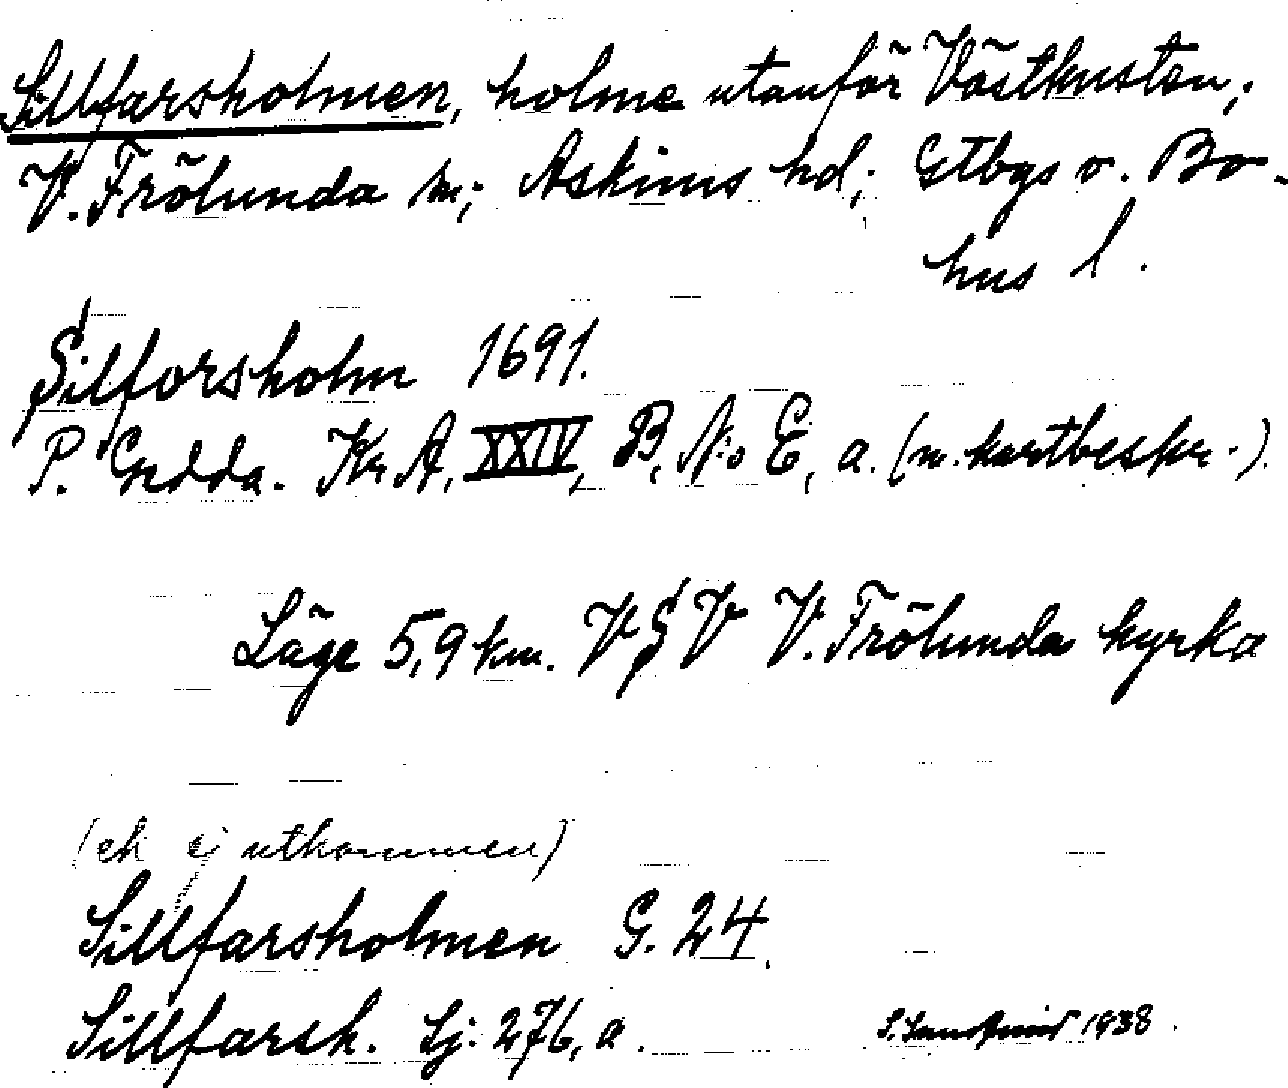 Sillfarsholmen, holme utanför Västkusten;
V. Frölunda sn; Askims hd; Gtbgs o. Bo-
hus l.
Silforsholm 1691.
P. Gedda. Kr. A, XXIV, B, N:o E, a. (m. kartbeskr.).
Läge 5,9 km. VSV V. Frölunda kyrka
(ek ej utkommen)
Sillfarsholmen G. 24.
Sillfarsh. Sj: 276, a.
1938